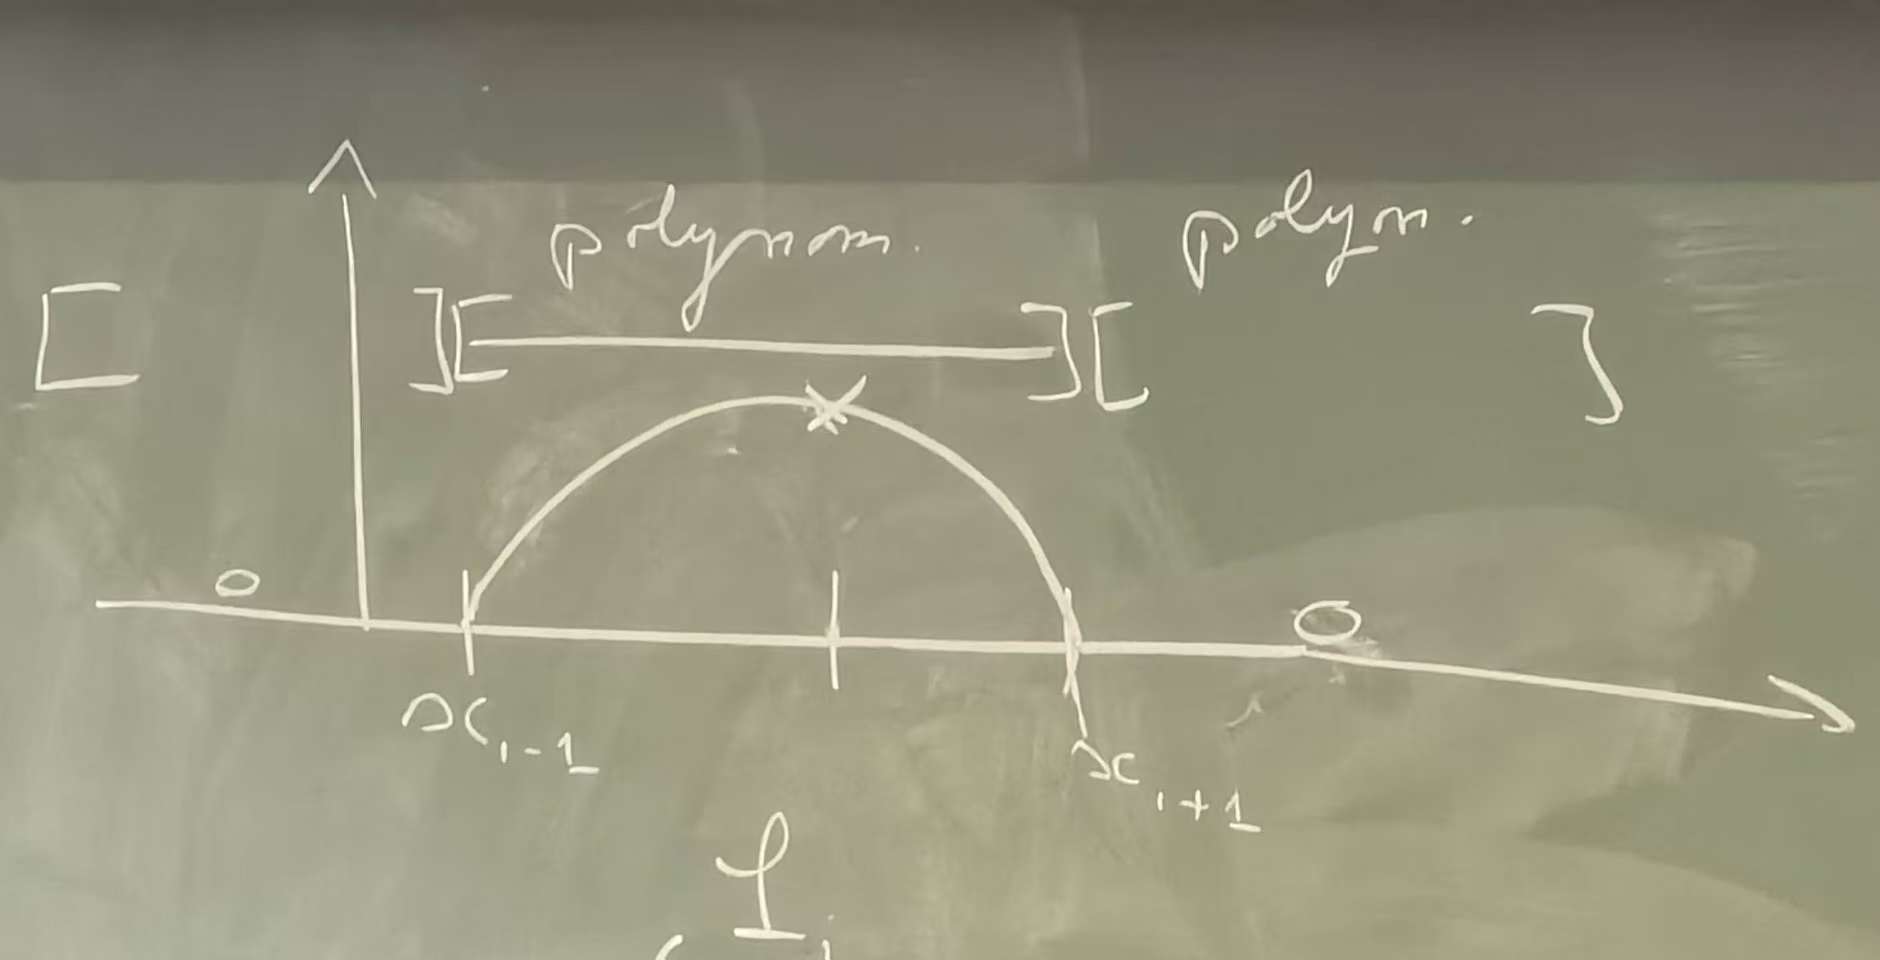 polynom. polyn.
[ ][ ][ ]
o O
x i-1 x i+1
φ i